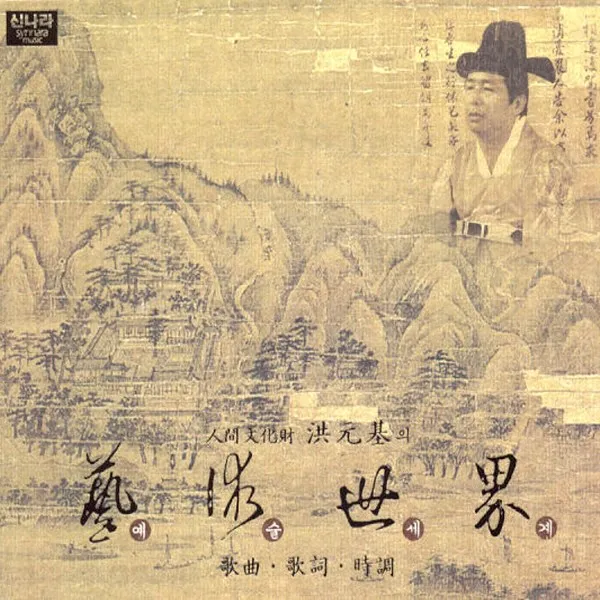 신나라
synnara
music
人間文化財 洪元基의
藝術世界
예술세계
歌曲·歌詞·時調